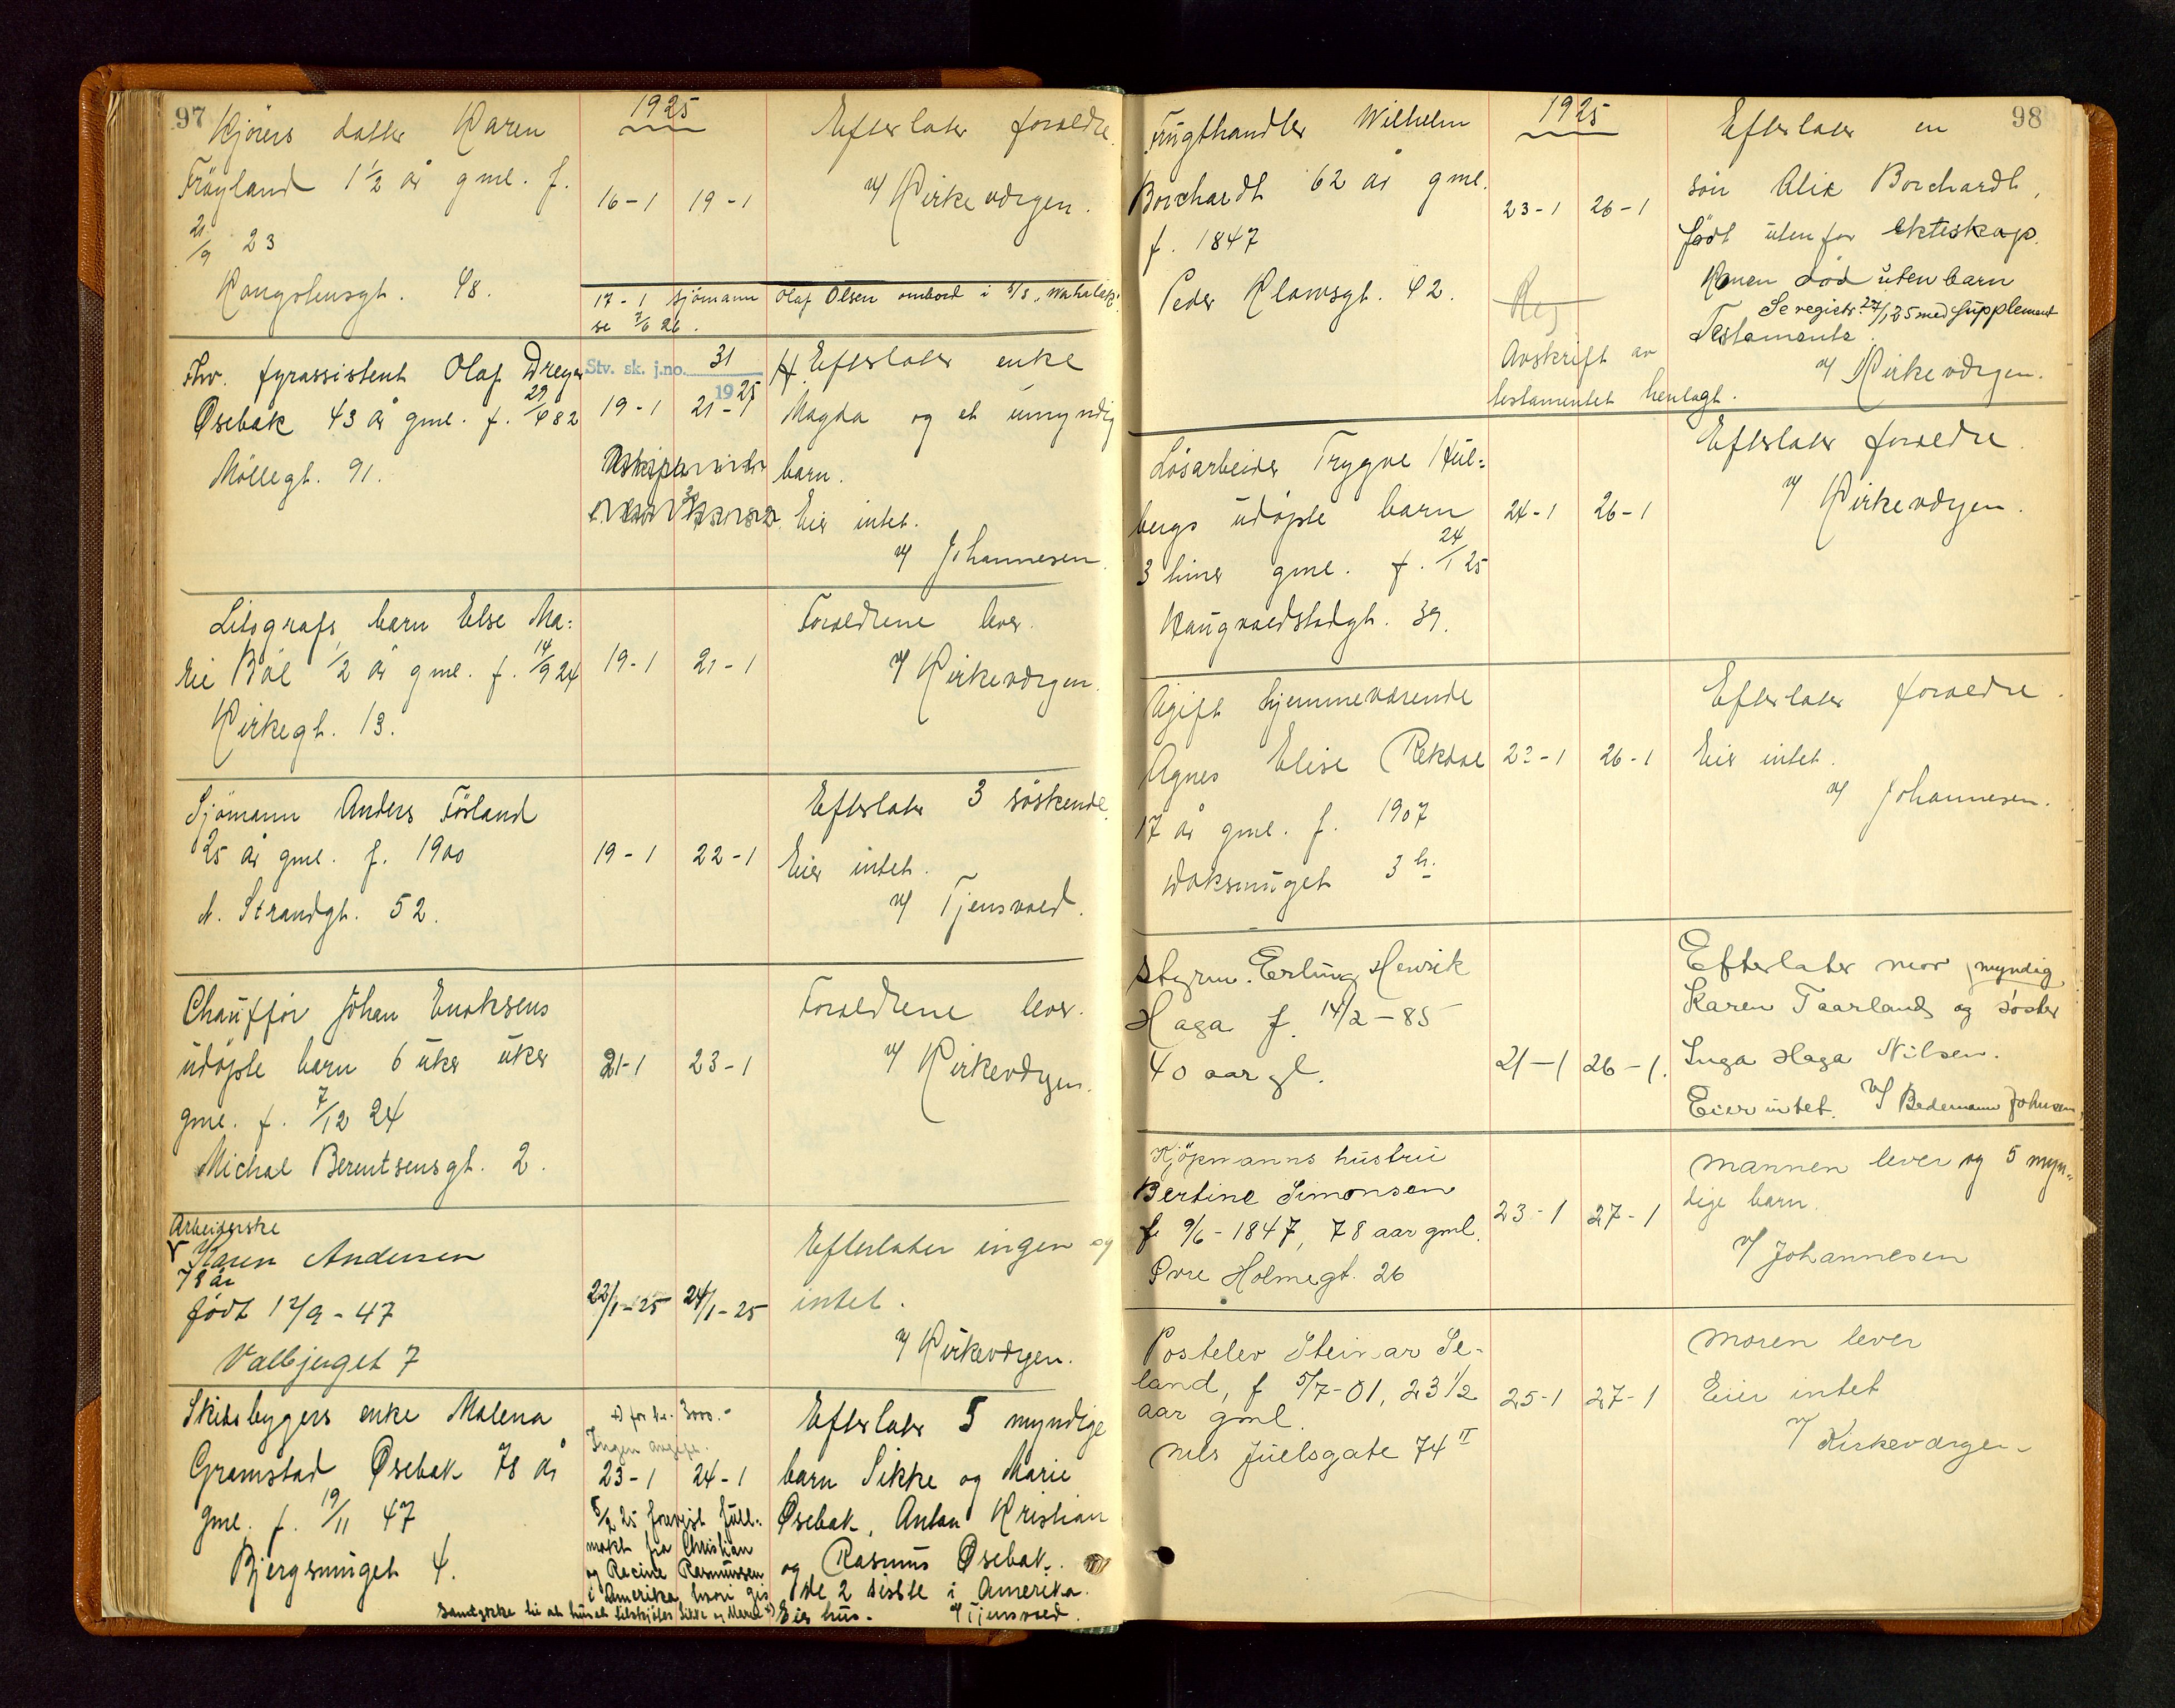 97
1925
Kjörers datter Karen
Fröyland 1 1/2 år gml. f.
21/9 23
Kongstensgt. 48.
16-1 19-1
Efterlater foreldre.
v/ Kirkevergen.
17-1 sjömann Olaf Olsen ombord i S/S
se 7/6 26.
Fhv. fyrassistent Olaf Dreyer
Øsebak 43 år gml. f. 29/4 82
Möllegt. 91.
Stv. sk. j.no. 31
1925
19-1 21-1
Efterlater enke
Magda og et umyndig
barn.
Eier intet.
v/ Johannesen.
Litografs barn Else Ma-
rie Böe 1/2 år gml. f. 14/9 24
Kirkegt. 13.
19-1 21-1
Foreldrene lever.
v/ Kirkevergen.
Sjömann Anders Förland
25 år gml. f. 1900
N. Strandgt. 52.
19-1 22-1
Efterlater 3 söskende.
Eier intet.
v/ Tjensvold.
Chaufför Johan Enoksens
udöpte barn 6 uker uker
gml. f. 7/12 24
Michal Berentsensgt. 2.
21-1 23-1
Foreldrene lever.
v/ Kirkevergen.
Arbeiderske
Karen Andersen
78 år
födt 12/9-47
Valbjerget 7
22/1-25 24/1-25
Efterlater ingen og
intet.
v/ Kirkevergen.
Skibsbyggers enke Malena
Gramstad Øsebak 78 år
gml. f. 19/11 47
Bjergsmuget 4.
x) for kr. 3000.-
Ingen avgift.
23-1 24-1
5/2 25 forevist full-
makt fra Christian
og Racine Rasmussen
i Amerika hvori gis
Samtykke til at huset tilskjötes Sikke og Marie x)
Efterlater 5 myndige
barn Sikke og Marie
Øsebak, Anton Kristian
og Rasmus Øsebak.
de 2 sidste i Amerika.
Eier hus. v/ Tjensvold.
98
1925
Frugthandler Wilhelm
Borchardt 62 år gml.
f. 1847
Peder Klowsgt. 42.
23-1 26-1
Reg
Avskrift av
testamentet henlagt.
Efterlater en
sön Alix Borchardt,
födt utenfor ekteskap.
Konen död uten barn
Se registr. 27/1 25 med supplement
Testamente.
v/ Kirkevergen.
Lösarbeider Trygve Hul-
bergs udöpte barn
3 timer gml. f. 24/1 25
Haugvaldstadgt. 39.
24-1 26-1
Efterlater foreldre.
v/ Kirkevergen.
Ugift hjemmeværende
Agnes Elise Rekdal
17 år gml. f. 1907
Voksmuget 3 b.
23-1 26-1
Efterlater foreldre.
Eier intet.
v/ Johannesen.
Styrm. Erling Henrik
Haga f. 14/2-85
40 aar gl.
21-1 26-1.
Efterlater mor myndig
Karen Taarland og söster
Inga Haga Nilsen.
Eier intet. v/ Bedemann Johnsen
Kjöpmanns hustru
Bertine Simonsen
f. 9/6-1847, 78 aar gml.
Øvre Holmegt. 26
23-1 27-1
Mannen lever og 5 myn-
dige barn.
v/ Johannesen
Postelev Steinar Se-
land, f 5/7-01, 23 1/2
aar gml.
Nels Juelsgate 74 II
25-1 27-1
Moren lever
Eier intet
v/ Kirkevergen